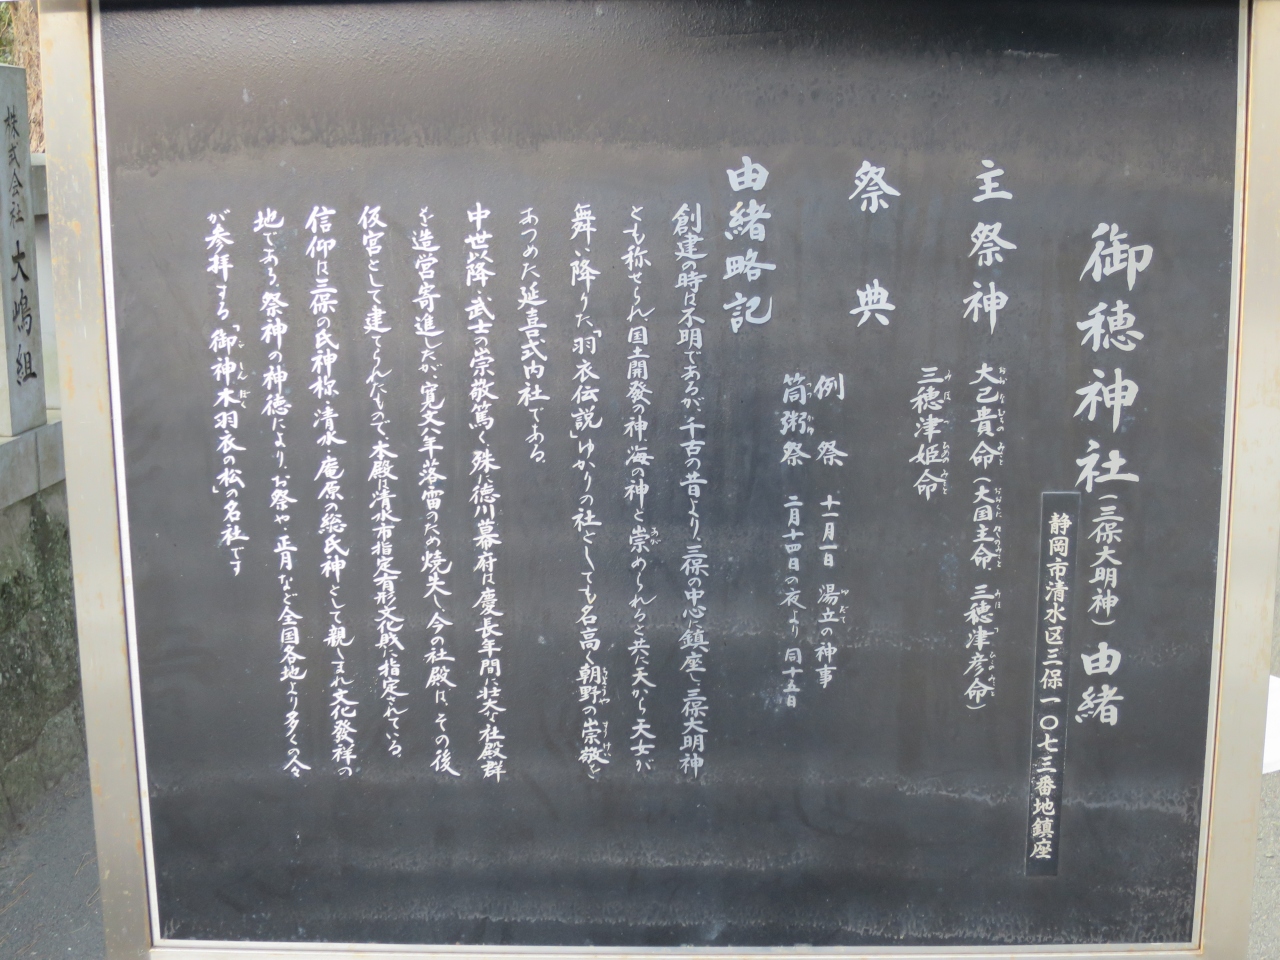 御穂神社(三保大明神)由緒
静岡市清水区三保一〇七三番地鎮座
主祭神
大己貴命(大国主命 三穂津彦命)
三穂津姫命
祭典
例祭 十一月一日 湯立の神事
筒粥祭 二月十四日の夜より 同十五日
由緒略記
創建の時は不明であるが、千古の昔より、三保の中心に鎮座し、三保大明神
とも称せられ国土開發の神、海の神と崇められると共に天から天女が
舞い降りた、「羽衣伝説」ゆかりの社としても名高く朝野の崇敬を
あつめた延喜式内社である。
中世以降、武士の崇敬篤く、殊に徳川幕府は慶長年間に壮大な社殿群
を造営寄進したが寛文八年落雷のため焼失し今の社殿は、その後
仮宮として建てられたもので本殿は清水市指定有形文化財に指定されている。
信仰は三保の氏神様、清水・庵原の総氏神として親しまれ文化發祥の
地である。祭神の神徳により、お祭や、正月など全国各地より多くの人々
が参拝する「御神木羽衣の松」の名社です
株式会社 大嶋組